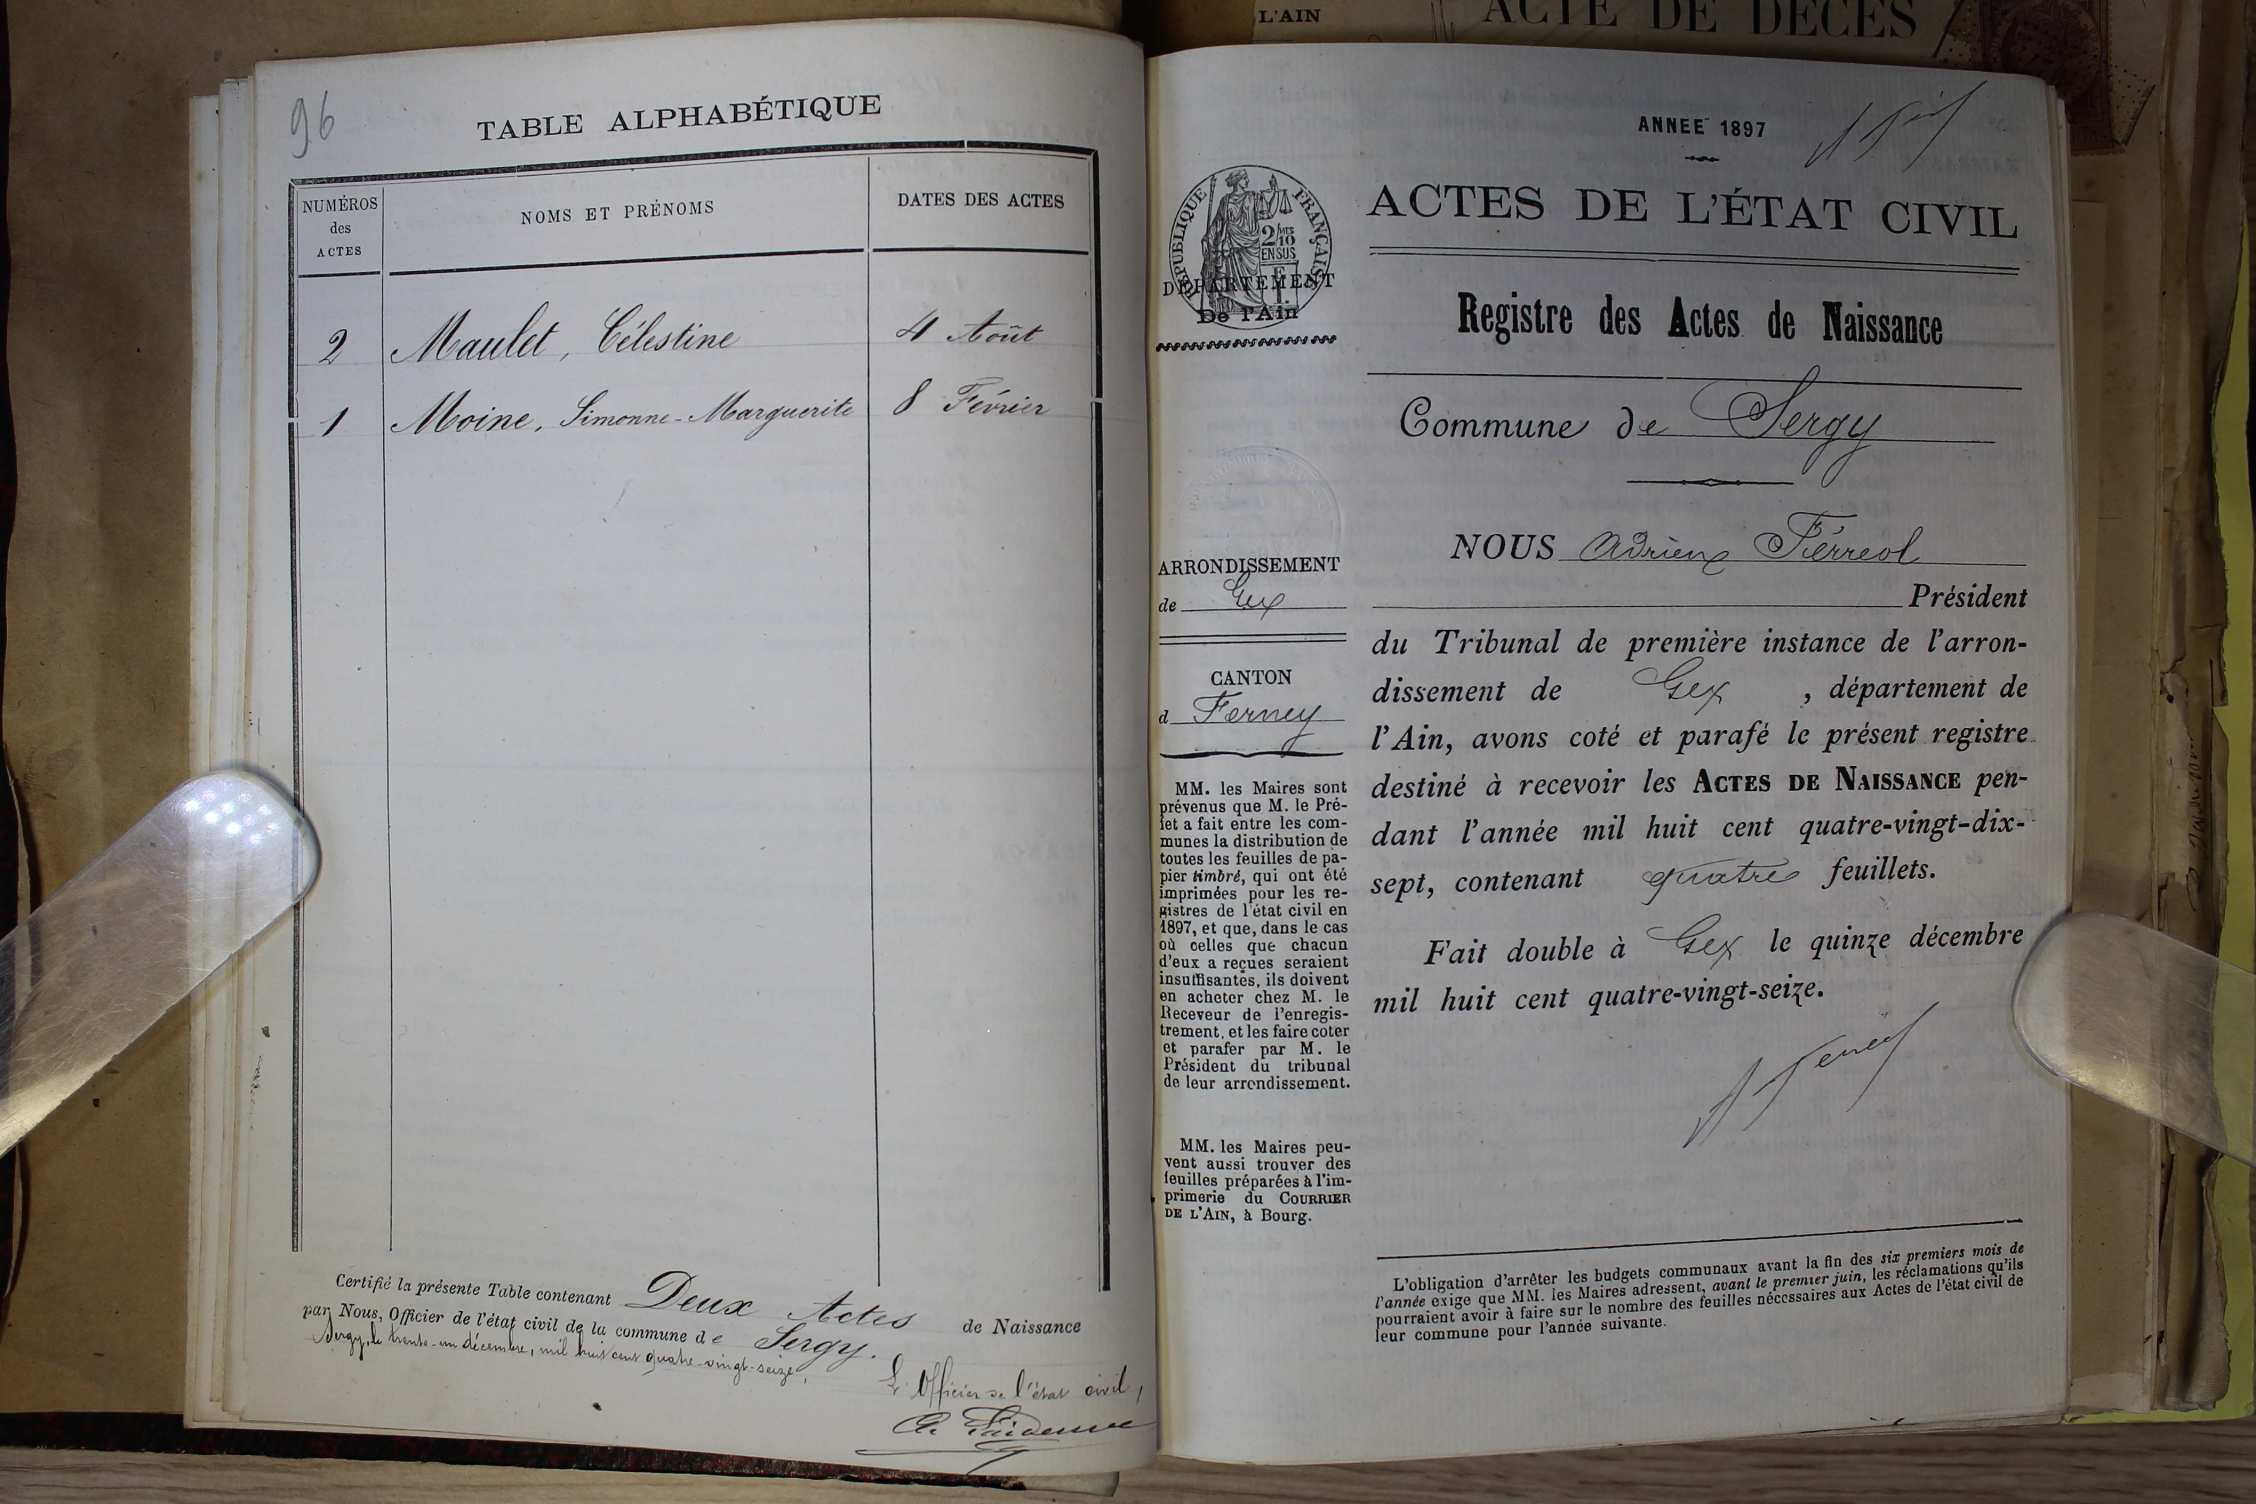 L'AIN
ACTE DE DÉCÈS
96
TABLE ALPHABÉTIQUE
NUMÉROS
des
ACTES
NOMS ET PRÉNOMS
DATES DES ACTES
2 Maulet, Célestine 4 Août
1 Moine, Simonne-Marguerite 8 Février
Certifié la présente Table contenant Deux Actes de Naissance
par Nous, Officier de l'état civil de la commune de Sergy.
Sergy, le trente-un décembre, mil huit cent quatre-vingt-seize,
L'Officier de l'état civil,
ANNEE 1897
ACTES DE L'ÉTAT CIVIL
RÉPUBLIQUE FRANÇAISE
2/10
EN SUS
DÉPARTEMENT
De l'Ain
Registre des Actes de Naissance
Commune de Sergy
NOUS Adrien Férréol
Président
du Tribunal de première instance de l'arron-
dissement de Gex, département de
l'Ain, avons coté et parafé le présent registre
destiné à recevoir les ACTES DE NAISSANCE pen-
dant l'année mil huit cent quatre-vingt-dix-
sept, contenant quatre feuillets.
Fait double à Gex le quinze décembre
mil huit cent quatre-vingt-seize.
ARRONDISSEMENT
de Gex
CANTON
d Ferney
MM. les Maires sont
prévenus que M. le Pré-
fet a fait entre les com-
munes la distribution de
toutes les feuilles de pa-
pier timbré, qui ont été
imprimées pour les re-
gistres de l'état civil en
1897, et que, dans le cas
où celles que chacun
d'eux a reçues seraient
insuffisantes, ils doivent
en acheter chez M. le
Receveur de l'enregis-
trement, et les faire coter
et parafer par M. le
Président du tribunal
de leur arrondissement.
MM. les Maires peu-
vent aussi trouver des
feuilles préparées à l'im-
primerie du COURRIER
DE L'AIN, à Bourg.
L'obligation d'arrêter les budgets communaux avant la fin des six premiers mois de
l'année exige que MM. les Maires adressent, avant le premier juin, les réclamations qu'ils
pourraient avoir à faire sur le nombre des feuilles nécessaires aux Actes de l'état civil de
leur commune pour l'année suivante.